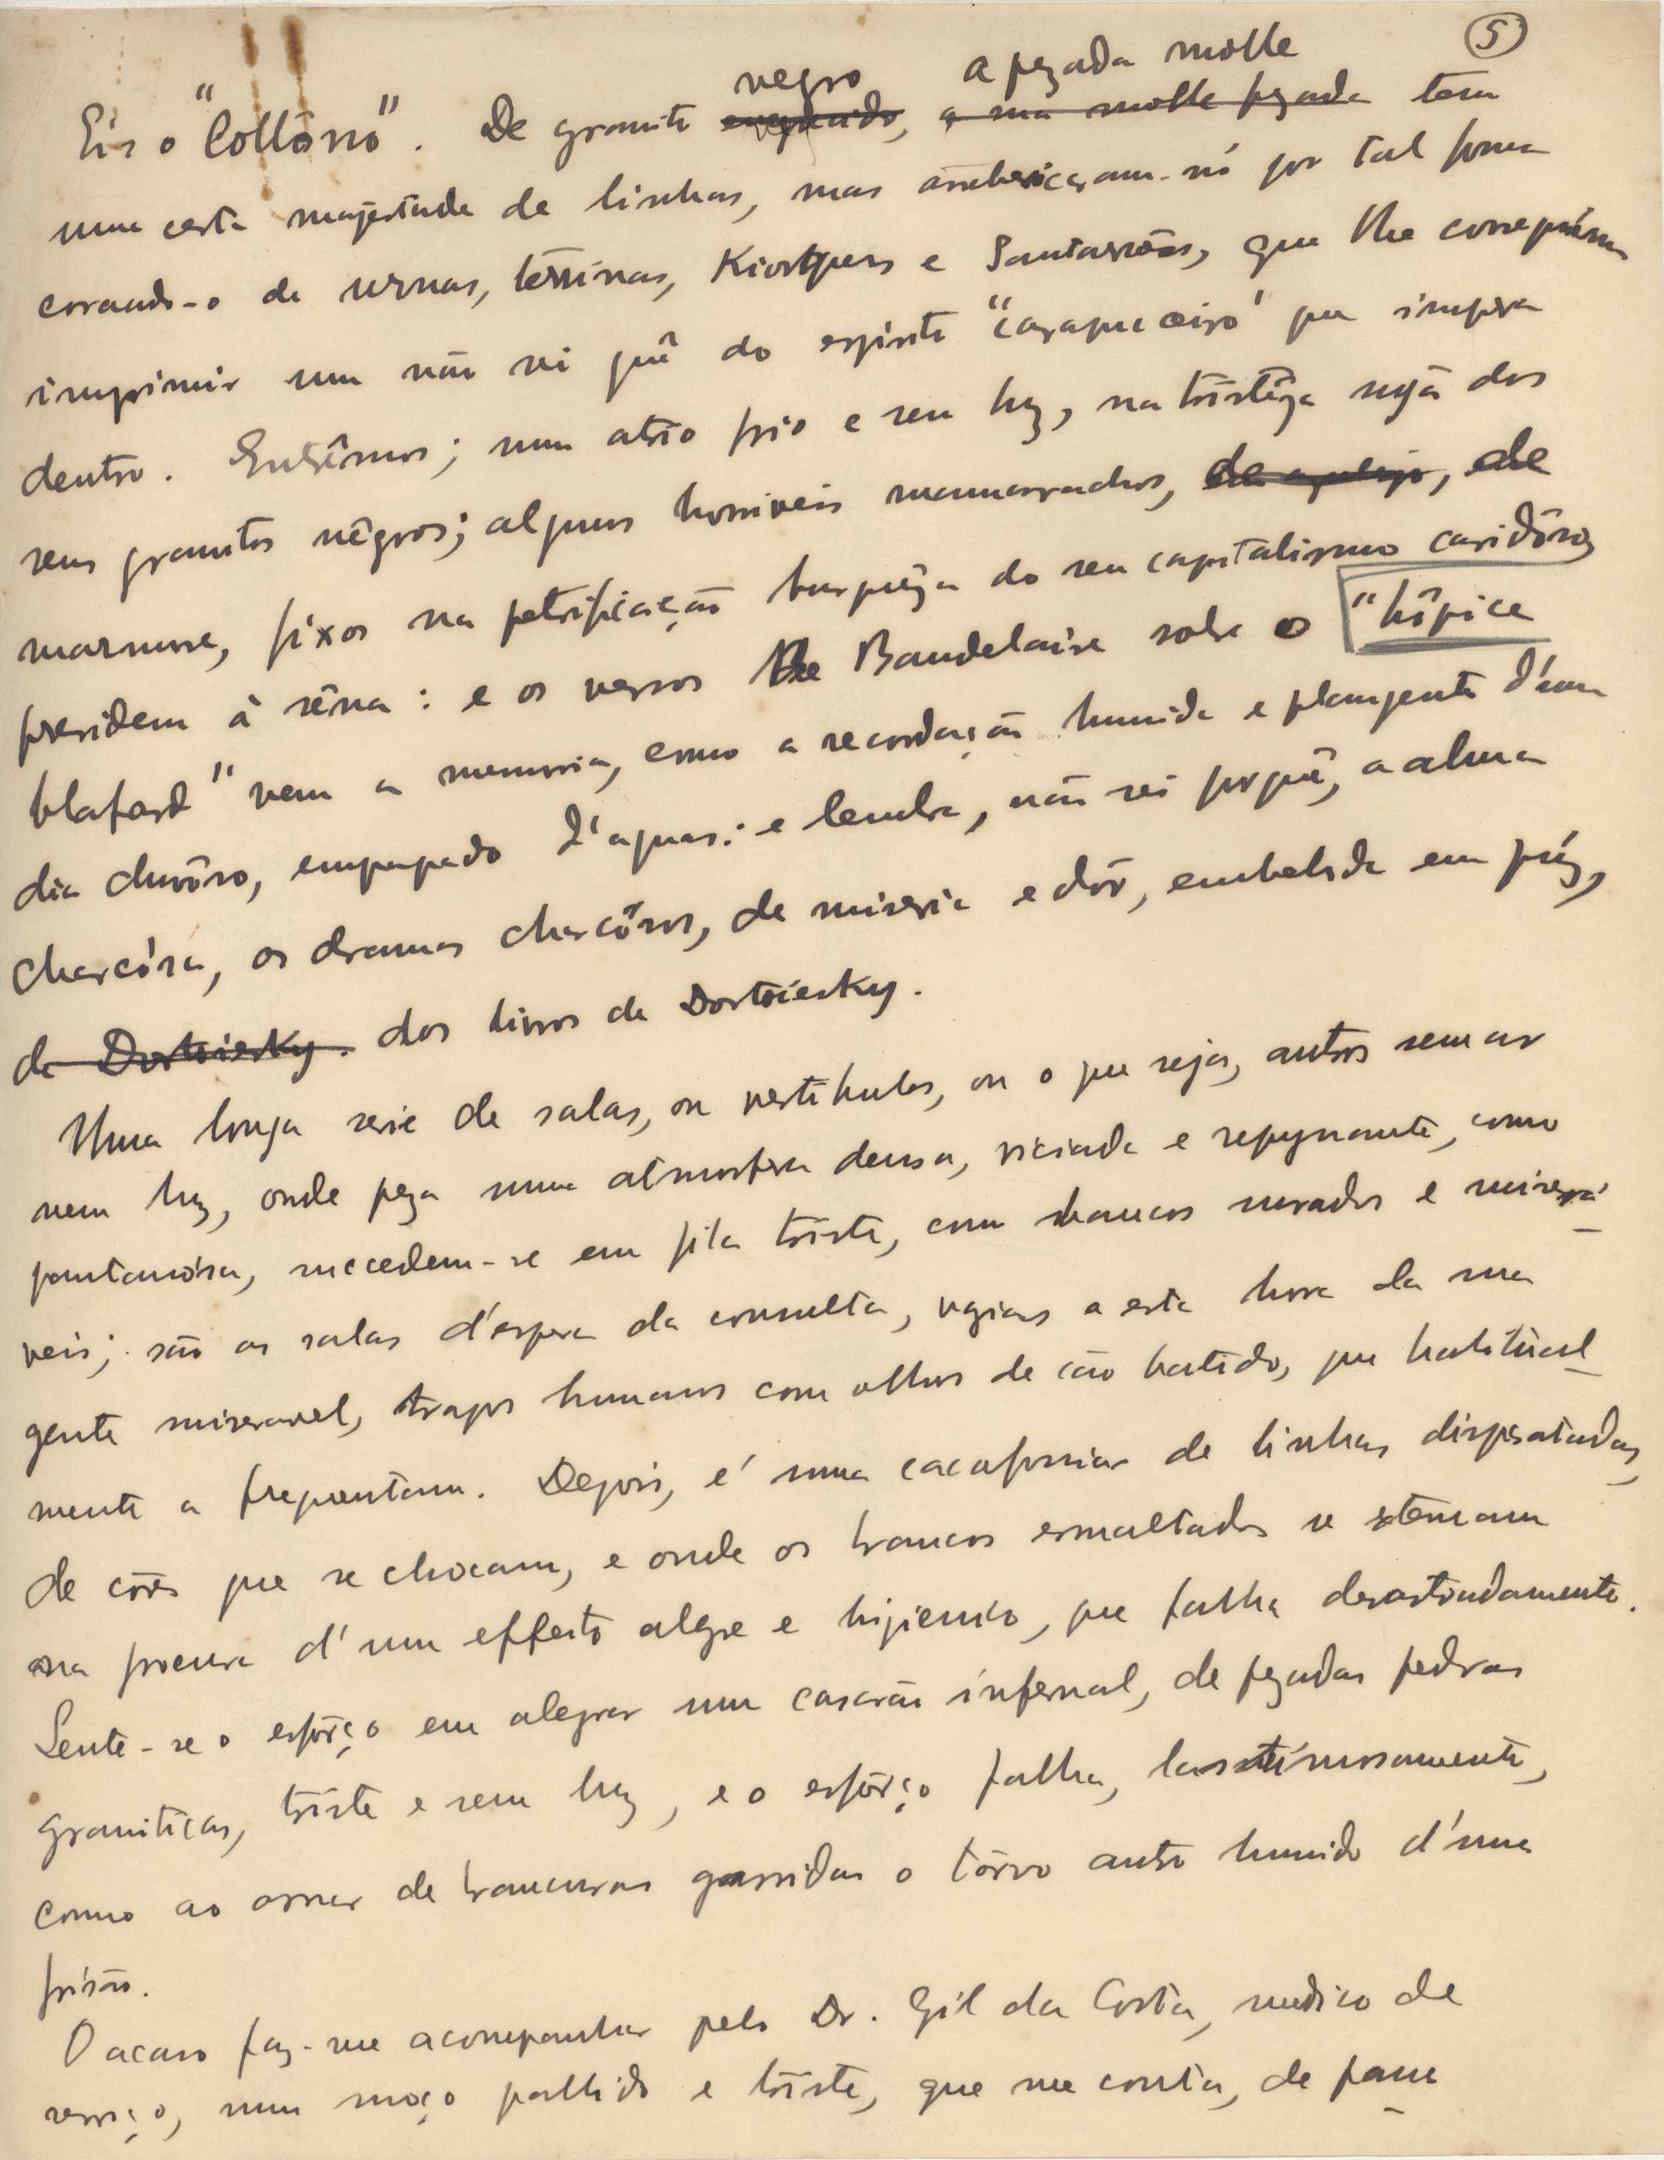 5
negro a pezada molle
Eis o "Collôsso". De granito ennegrecido, a sua molle pezada tem
uma certa majestade de linhas, mas arrebicaram-nó por tal forma
coroando-o de urnas, terrinas, Kiosques e Santarrões, que lhe conseguiram
imprimir um não sei quê do espirito "carapuceiro" que impera
dentro. Entrâmos; num atrio frio e sem luz, na tristêza suja dos
seus granitos nêgros; alguns horriveis mamarrachos, de azulejo, de
marmore, fixos na petrificação burguêza do seu capitalismo caridôso,
presidem á sêna: e os versos de Baudelaire sobre o "hôpice
blafard" vem a memoria, como a recordação humida e plangente d'um
dia chuvôso, empapado d'aguas: e lembra, não sei porquê, a alma
charcósa, os dramas charcôsos, de miseria e dôr, embebida em púz,
de Dostoiesky. dos livros de Dostoiesky.
Uma longa serie de salas, ou vestibulos, ou o que seja, antros sem ar
nem luz, onde peza uma atmosfera densa, viciada e repugnante, como
pantanósa, succedem-se em fila triste, com bancos surados e miserá-
veis; são as salas d'espera da consulta, vazias a esta hora da sua
gente miseravel, trapos humanos com olhos de cão batido, que habitual-
mente a frequentam. Depois, é uma cacafonia de linhas disparatadas,
de côres que se chocam, e onde os brancos esmaltados se teimam
na procura d'um effeito alegre e higienico, que falha desastradamente.
Sente-se o esfôrço em alegrar um casarão infernal, de pezadas pedras
graniticas, triste e sem luz, e o esfôrço falha, lastimosamente,
como ao ornar de brancuras garridas o tôrvo antro humido d'uma
prisão.
O acaso faz-me acompanhar pelo Dr. Gil da Costa, medico de
serviço, um moço pallido e triste, que me conta, de pass